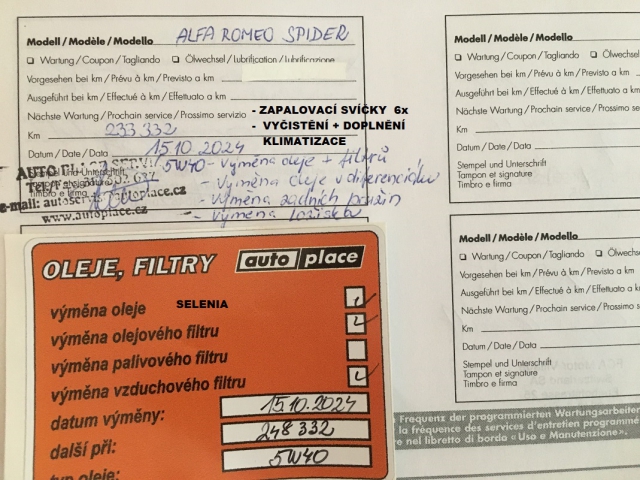 Modell / Modèle / Modello ALFA ROMEO SPIDER
❑ Wartung / Coupon / Tagliando ❑ Ölwechsel / Lubrification / Lubrificazione
Vorgesehen bei km / Prévu à km / Previsto a km
Ausgeführt bei km / Effectué à km / Effettuato a km
- ZAPALOVACÍ SVÍČKY 6x
Nächste Wartung / Prochain service / Prossimo servizio
- VYČISTĚNÍ + DOPLNĚNÍ
KLIMATIZACE
Km 233 332
Datum / Date / Data 15.10.2024
5W40 - výměna oleje + filtrů
- výměna oleje v diferenciálu
- výměna zadních pružin
- výměna ložisek
AUTO
Stempel und Unterschrift
Timbro e firma
e-mail:
www.autoplace.cz
OLEJE, FILTRY auto place
výměna oleje SELENIA
výměna olejového filtru
výměna palivového filtru
výměna vzduchového filtru
datum výměny: 15.10.2024
další při: 248 332
typ oleje: 5W40
Modell / Modèle / Modello
❑ Wartung / Coupon / Tagliando ❑ Ölwechsel
Vorgesehen bei km / Prévu à km / Previsto a km
Ausgeführt bei km / Effectué à km / Effettuato a km
Nächste Wartung / Prochain service / Prossimo
Km
Datum / Date / Data
Stempel und Unterschrift
Tampon et signature
Timbro e firma
Modell / Modèle / Modello
❑ Wartung / Coupon / Tagliando ❑ Ölwechsel
Vorgesehen bei km / Prévu à km / Previsto a km
Ausgeführt bei km / Effectué à km / Effettuato a km
Nächste Wartung / Prochain service / Prossimo
Km
Datum / Date / Data
Stempel und Unterschrift
Tampon et signature
Timbro e firma
Frequenz der programmierten Wartungsarbeiten
la fréquence des services d'entretien programmé
nel libretto di bordo «Uso e Manutenzione».